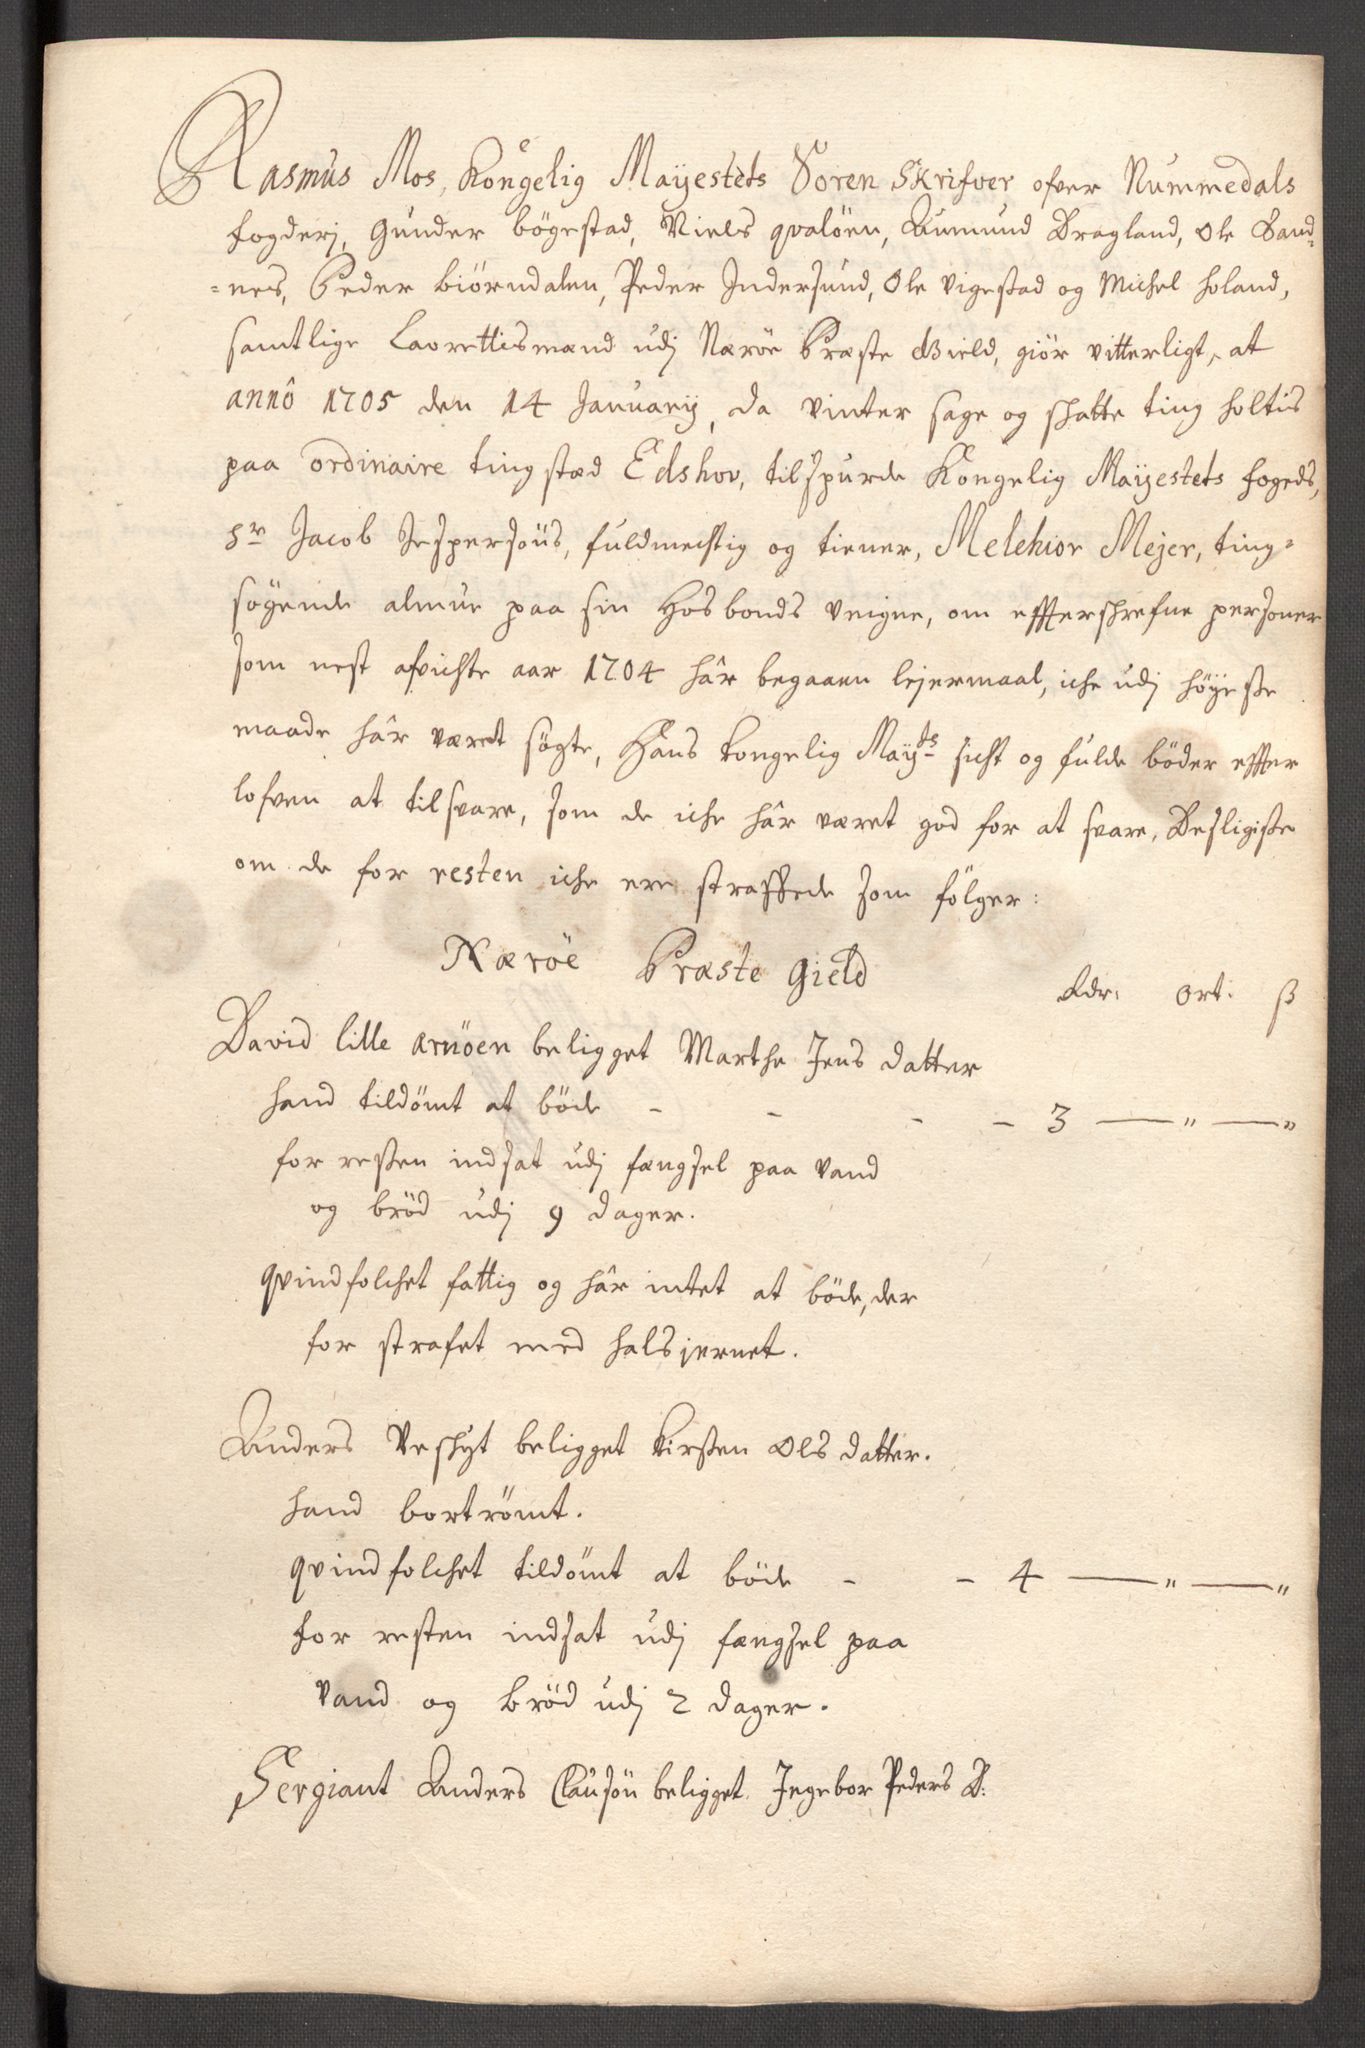 Rasmus Mos, Kongelig Mayestets Soren Skrifver ofver Nummedals
fogderj, Gunder bögestad, Niels qvalöen, Aumund Dragland, Ole Sand-
=nes, Peder biörndalen, Peder Indersund, Ole Vigestad og Michel holand,
samtlige Laurettismænd udj Næröe Præste Gield, giör vitterligt, at
annô 1705 den 14 January, da vinter sage og skatte ting holtis
paa ordinaire tingstæd Edshov, tilspurde Kongelig Mayestets fogeds,
Sr Jacob Jespersöns, fuldmechtig og tiener, Melchior Mejer, ting-
sögende almue paa sin Hosbonds veigne, om effterschrefne personer
som nest afvichte aar 1704 hâr begaaen lejermaal, iche udj höyeste
maade hâr været sögte, Hans kongelig Mayts sicht og fulde böder effter
lofven at tilsvare, som de iche hâr været god for at svare, Desligiste
om de for resten iche ere straffede som fölger:
Næröe Præste Gield
Rdr: Ort: ß
David lille arnöen beligget Marthe Jens datter
hand tildömt at böde - - - - 3 — " — "
for resten indsat udj fængsel paa vand
og bröd udj 9 dager.
qvindfolchet fattig og hâr intet at böde, der
for strafet med halsjernet.
Anders Veskyt beligget Kirsten Ols datter.
hand bortrömt.
qvindfolchet tildömt at böde - - 4 — " — "
for resten indsat udj fængsel paa
vand og bröd udj 2 dager.
Sergiant Anders Clausön beligget Ingebor Peders D: